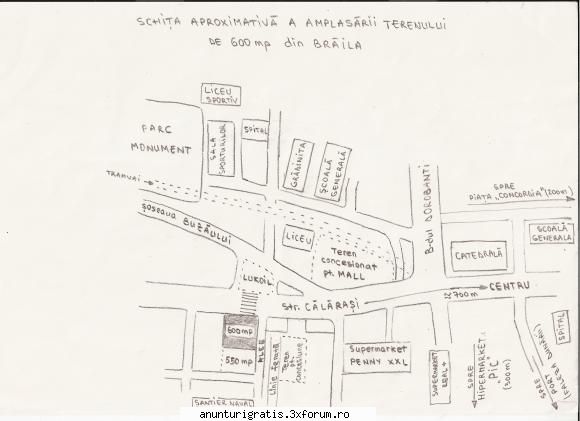 SCHIȚA APROXIMATIVĂ A AMPLASĂRII TERENULUI
DE 600 mp din BRĂILA
LICEU
SPORTIV
PARC
MONUMENT
SALA
SPORTURILOR
SPITAL
GRĂDINIȚA
ȘCOALĂ
GENERALĂ
TRAMVAI
B-dul DOROBANTI
SPRE
PIAȚA „CONCORDIA" (200m)
ȘOSEAUA BUZĂULUI
LICEU
Teren
concesionat
pt. MALL
CATEDRALĂ
ȘCOALĂ
GENERALĂ
LUKOIL
STR. CĂLĂRAȘI
≈ 700m
CENTRU
600 mp
550 mp
ALEE
LINIE FERATĂ
Teren
pt.
concesiune
Supermarket
PENNY XXL
SUPERMARKET
REAL
SPRE
HIPERMARKET
"PIC"
(300m)
SPRE
PORT
(FALEZA DUNĂRII)
SPITAL
SANTIER NAVAL
anunturigratis.3xforum.ro